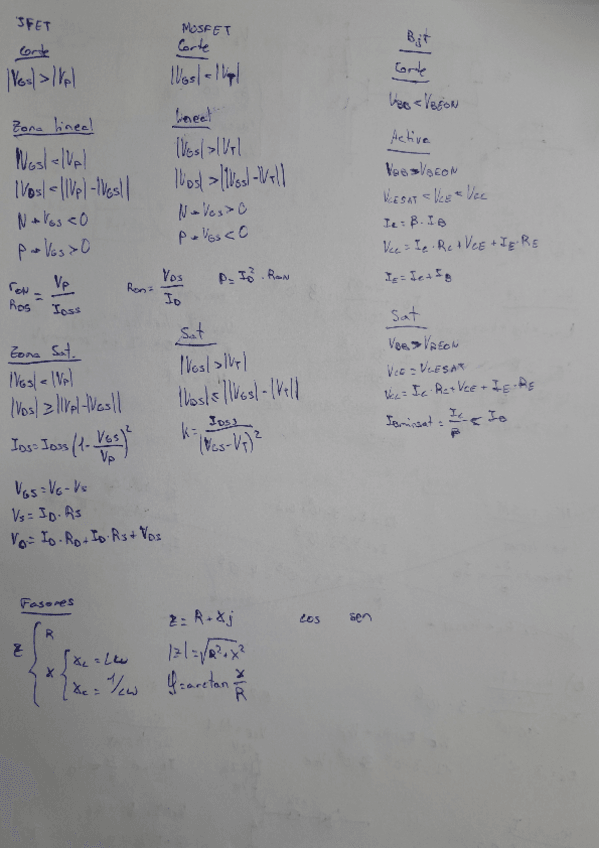 JFET
Corte
|VGS| > |VP|
Zona lineal
|VGS| < |VP|
|VDS| < ||VP| - |VGS||
N → VGS < 0
P → VGS > 0
rON
RDS = VP / IDSS
Zona Sat.
|VGS| < |VP|
|VDS| ≥ ||VP| - |VGS||
IDS = IDSS (1 - VGS / VP)^2
VGS = VG - VS
VS = ID · RS
VD = ID · RD + ID · RS + VDS
MOSFET
Corte
|VGS| < |VT|
Lineal
|VGS| > |VT|
|VDS| > ||VGS| - |VT||
N → VGS > 0
P → VGS < 0
Ron = VDS / ID
P = ID^2 · RON
Sat
|VGS| > |VT|
|VDS| ≤ ||VGS| - |VT||
K = IDSS / (VGS - VT)^2
Bjt
Corte
VBB < VBEON
Activa
VBB > VBEON
VCESAT < VCE < VCC
IC = β · IB
VCC = IC · RC + VCE + IE · RE
IE = IC + IB
Sat
VBB > VBEON
VCE = VCESAT
VCC = IC · RC + VCE + IE · RE
IBminsat = IC / β ≤ IB
Fasores
Z { R
X { XL = Lω
XC = 1/Cω
Z = R + Xj
|Z| = √R^2 + X^2
φ = arctan X / R
cos sen